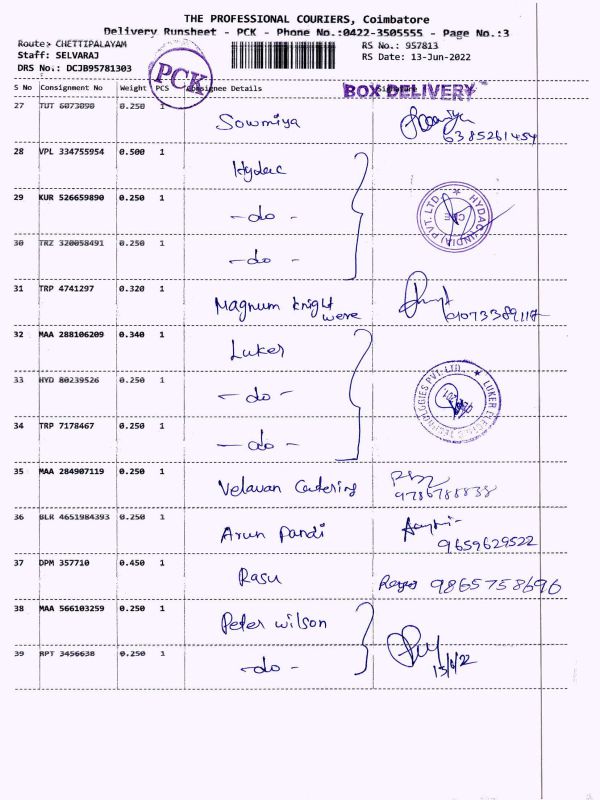 THE PROFESSIONAL COURIERS, Coimbatore
Delivery Runsheet - PCK - Phone No.:0422-3505555 - Page No.:3
Route: CHETTIPALAYAM
Staff: SELVARAJ
DRS No.: DCJB95781303
RS No.: 957813
RS Date: 13-Jun-2022
PCK
BOX DELIVERY
S No Consignment No Weight PCS Consignee Details
27 TUT 6073090 0.250 1 Sowmiya 6385261454
28 VPL 334755954 0.500 1 Hydac
29 KUR 526659890 0.250 1 -do-
HYDAC (INDIA) PVT. LTD.
30 TRZ 320058491 0.250 1 -do-
31 TRP 4741297 0.320 1 Magnum knight were
32 MAA 288106209 0.340 1 Luker
33 HYD 80239526 0.250 1 -do-
LUKER ELECTRIC TECHNOLOGIES PVT. LTD.
34 TRP 7178467 0.250 1 -do-
35 MAA 284907119 0.250 1 Velavan Catering
36 BLR 4651984393 0.250 1 Arun Pandi 9659629522
37 DPM 357710 0.450 1 Rasu 9865758696
38 MAA 566103259 0.250 1 Peter wilson
39 RPT 3456638 0.250 1 -do- 15/6/22